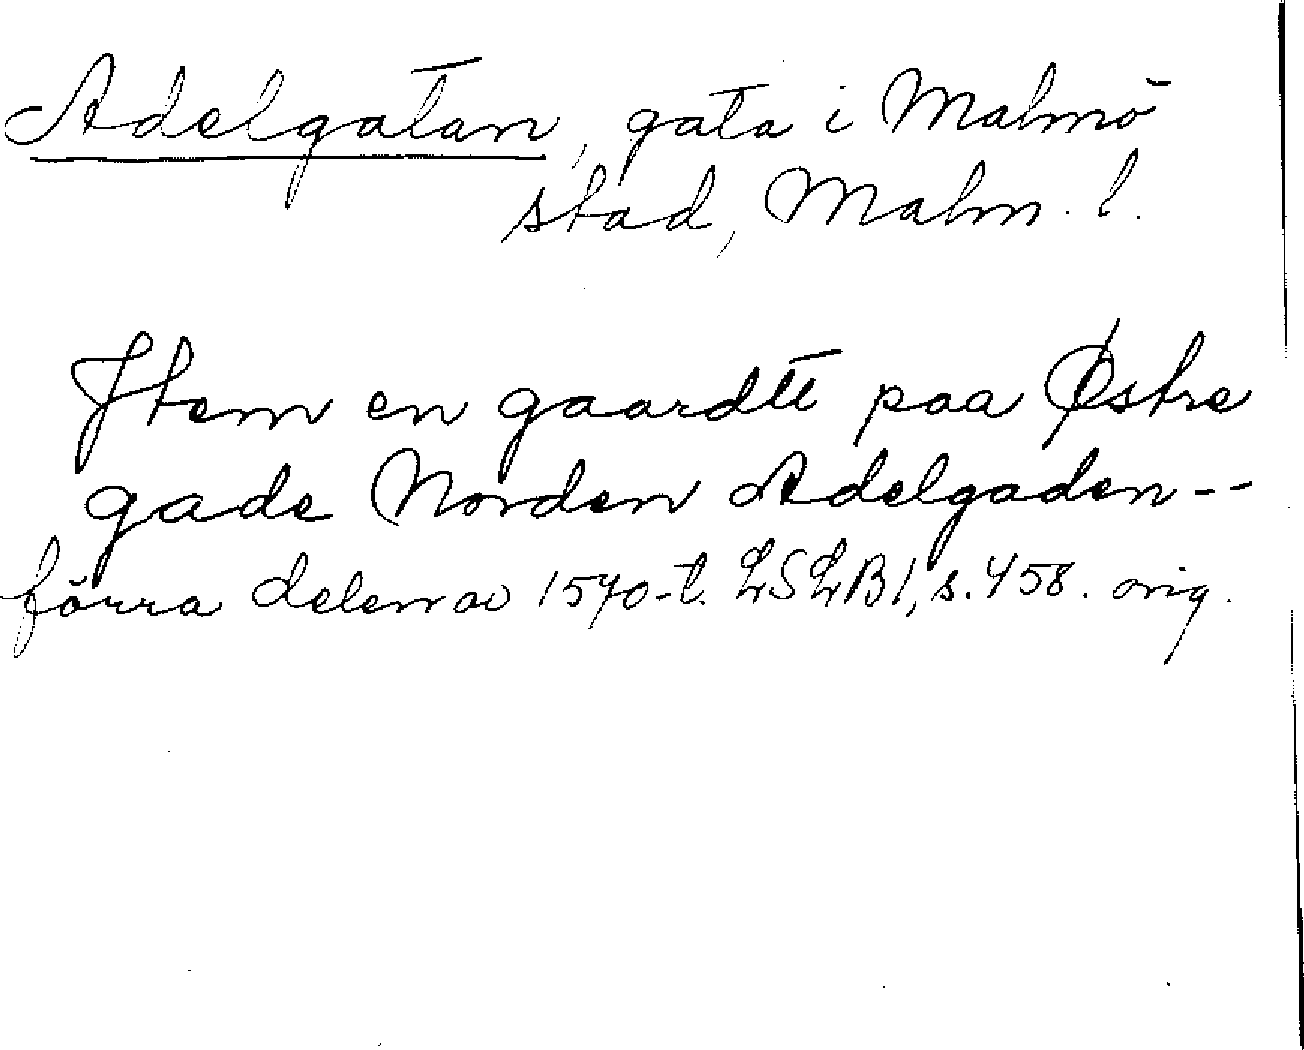 Adelgatan, gata i Malmö
stad, Malm. l.
Item en gaardtt paa Østre
gade Norden Adelgaden--
förra delen av 1570-t. LSLB1, s. 458. orig.